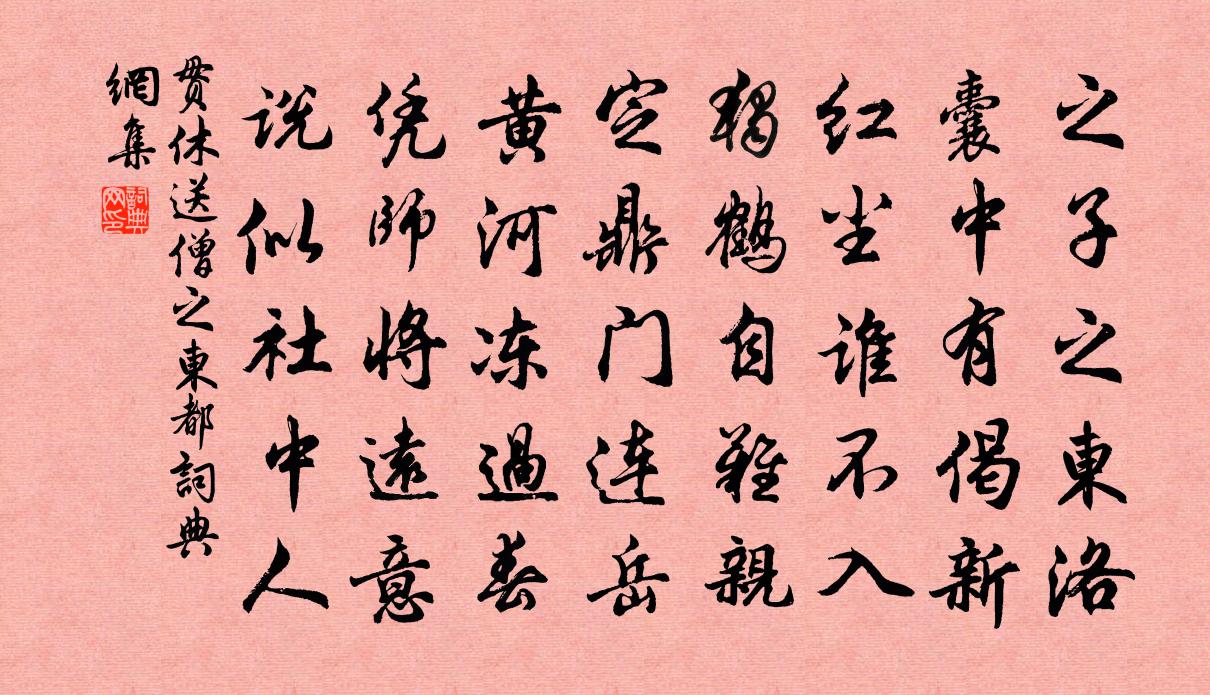 之子之東洛
囊中有偈新
红尘谁不入
獨鶴自難親
定鼎门连岳
黄河冻過春
凭師將遠意
说似社中人
贯休送僧之東都詞典
網集
詞典網印